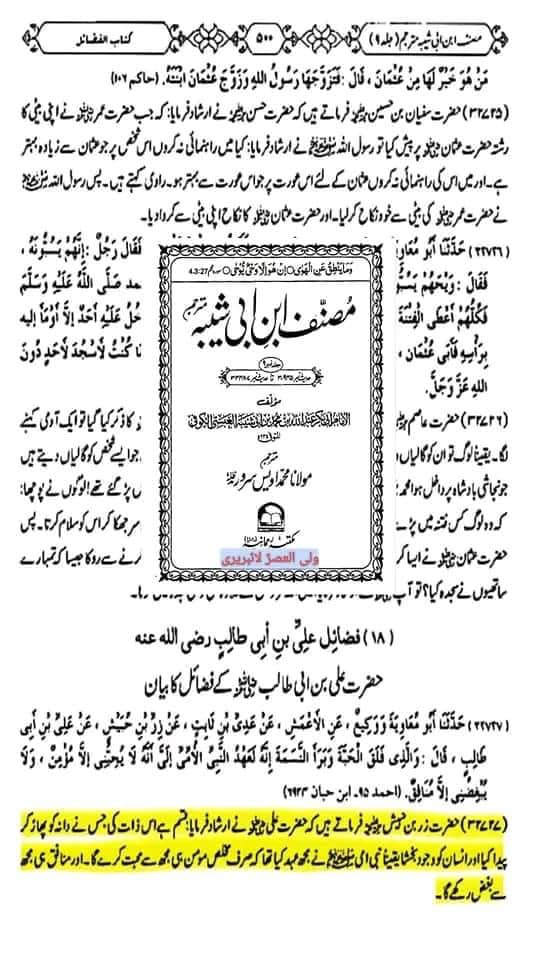 مصنف ابن ابی شیبہ مترجم (جلد ۹)
۵۰۰
کتاب الفضائل
مَنْ هُوَ خَيْرٌ لَهَا مِنْ عُثْمَانَ ، قَالَ : فَتَزَوَّجَهَا رَسُولُ اللهِ وَزَوَّجَ عُثْمَانَ ابْنَتَهُ. (حاکم ۱۰۶)
(۳۲۷۲۵) حضرت سفیان بن حسین فرماتے ہیں کہ حضرت حسن نے ارشاد فرمایا: کہ جب حضرت عمر نے اپنی بیٹی کا
رشتہ حضرت عثمان پر پیش کیا تو رسول اللہ ﷺ نے ارشاد فرمایا: کیا میں راہنمائی نہ کروں اس شخص پر جو عثمان سے زیادہ بہتر
ہے۔ اور میں اس کی راہنمائی نہ کروں عثمان کے لئے اس عورت پر جو اس عورت سے بہتر ہو۔ راوی کہتے ہیں۔ پس رسول اللہ ﷺ
نے حضرت عمر کی بیٹی سے خود نکاح کر لیا۔ اور حضرت عثمان کا نکاح اپنی بیٹی سے کروا دیا۔
(۳۲۷۲۶) حَدَّثَنَا أَبُو مُعَاوِ
فَقَالَ رَجُلٌ : إِنَّهُمْ يَسُبُّونَهُ ،
فَقَالَ : وَيْحَهُمْ يَسُبُّو
مد صَلَّى اللَّهُ عَلَيْهِ وَسَلَّمَ
فَكُلُّهُمْ أَعْطَى الْفِتْنَةَ
حُلُ عَلَيْهِ أَحَدٌ إِلَّا أَوْمَأَ إِلَيْهِ
بِرَأْسِهِ فَأَبَى عُثْمَان ،
كُنْتُ لِأَسْجُدَ لِأَحَدٍ دُونَ
اللهِ عَزَّ وَجَلَّ.
وَمَا يَنْطِقُ عَنِ الْهَوٰى ○ إِنْ هُوَ إِلَّا وَحْيٌ يُوحٰى ○
مُصنّف ابنِ ابی شیبہ
مترجم
جلد نمبر ۹
مؤلف
مترجم
مولانا محمد اویس سرور
مکتبہ رحمانیہ
ولی العصر لائبریری
(۳۲۷۲۶) حضرت عاصم
کا ذکر کیا گیا تو ایک آدمی کہنے
لگا۔ یقیناً لوگ تو ان کو گالیاں
جو ایسے شخص کو گالیاں دیتے ہیں
جو نجاشی بادشاہ پر داخل ہوا محمد
پڑ گئے تھے! لوگوں نے پوچھا:
کہ وہ لوگ کس فتنہ میں پڑے
سر جھکا کر اس کو سلام کرتا۔ پس
حضرت عثمان نے ایسا کر
نے سے روکا جیسا کہ تمہارے
ساتھیوں نے سجدہ کیا؟ تو آپ
(۱۸) فضائل علیّ بن أبی طالب رضی الله عنه
حضرت علی بن ابی طالب کے فضائل کا بیان
(۳۲۷۲۷) حَدَّثَنَا أَبُو مُعَاوِيَةَ وَوَكِيعٌ ، عَنِ الْأَعْمَشِ ، عَنْ عَدِيِّ بْنِ ثَابِتٍ ، عَنْ زِرِّ بْنِ حُبَيْشٍ ، عَنْ عَلِيِّ بْنِ أَبِي
طَالِبٍ ، قَالَ : وَالَّذِي فَلَقَ الْحَبَّةَ وَبَرَأَ النَّسَمَةَ إِنَّهُ لَعَهْدُ النَّبِيِّ الْأُمِّيِّ إِلَيَّ أَنَّهُ لَا يُحِبُّنِي إِلَّا مُؤْمِنٌ ، وَلَا
يُبْغِضُنِي إِلَّا مُنَافِقٌ. (احمد ۹۵۔ ابن حبان ۶۹۲۴)
(۳۲۷۲۷) حضرت زر بن حبیش فرماتے ہیں کہ حضرت علی نے ارشاد فرمایا: قسم ہے اس ذات کی جس نے دانہ کو پھاڑ کر
پیدا کیا اور انسان کو وجود بخشا یقیناً نبی امی ﷺ نے مجھ سے عہد کیا تھا کہ صرف مخلص مومن ہی مجھ سے محبت کرے گا۔ اور منافق ہی مجھ
سے بغض رکھے گا۔